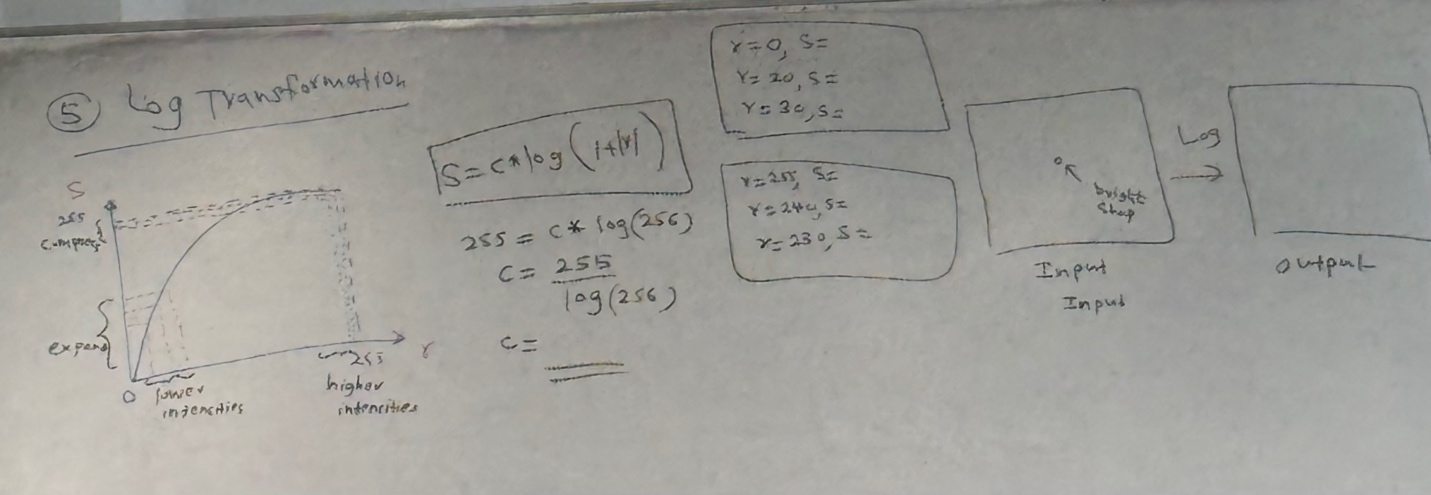 5 Log Transformation
S
255
compress
expand
0
lower
intensities
255
r
higher
intensities
S = c * log (1+|r|)
255 = c * log(256)
c = 255
log(256)
c =
r=0, S=
r=20, S=
r=30, S=
r=255, S=
r=240, S=
r=230, S=
bright
Input
Input
Log
output